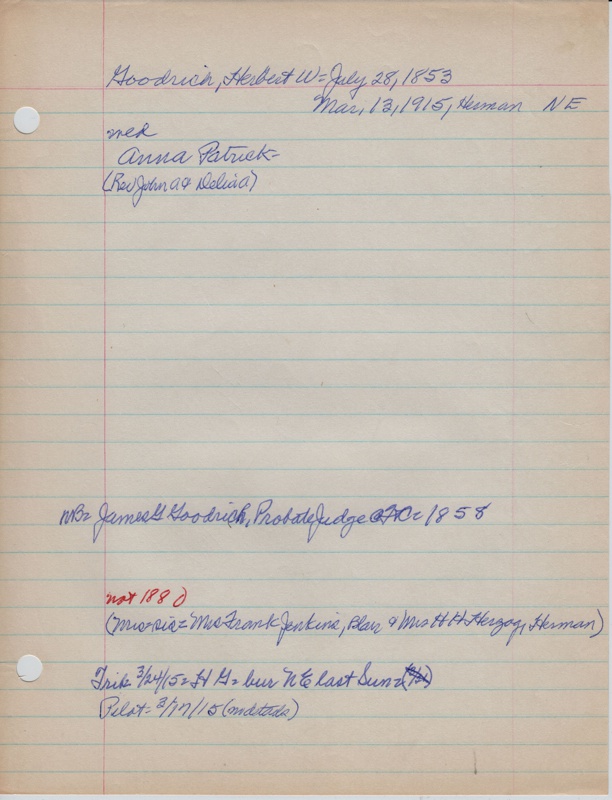 Goodrich, Herbert W = July 28, 1853
Mar, 13, 1915, Herman NE
med
Anna Patrick -
(Rev John A & Delia A)
NB = James G Goodrich, Probate Judge = 1858
not 1880
(Mrs = Mrs Frank Jenkins, Blair & Mrs H H Herzog, Herman)
Trib = 3/24/15 = H G = bur NE last Sun =
Pilot - 3/17/15